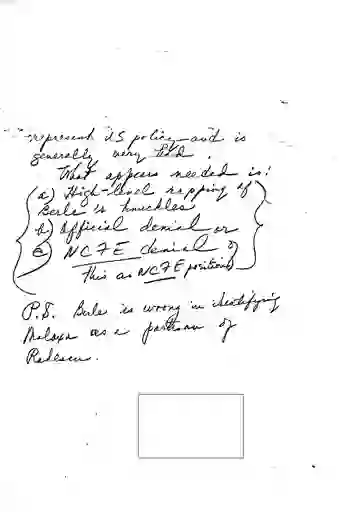 represent US policy and is
generally very bad.
What appears needed is:
(a) High-level rapping of
Berle's knuckles
b) Official denial or
c) NCFE denial of
this as NCFE position
P.S. Berle is wrong in identifying
Malaxa as a partisan of
Radescu.